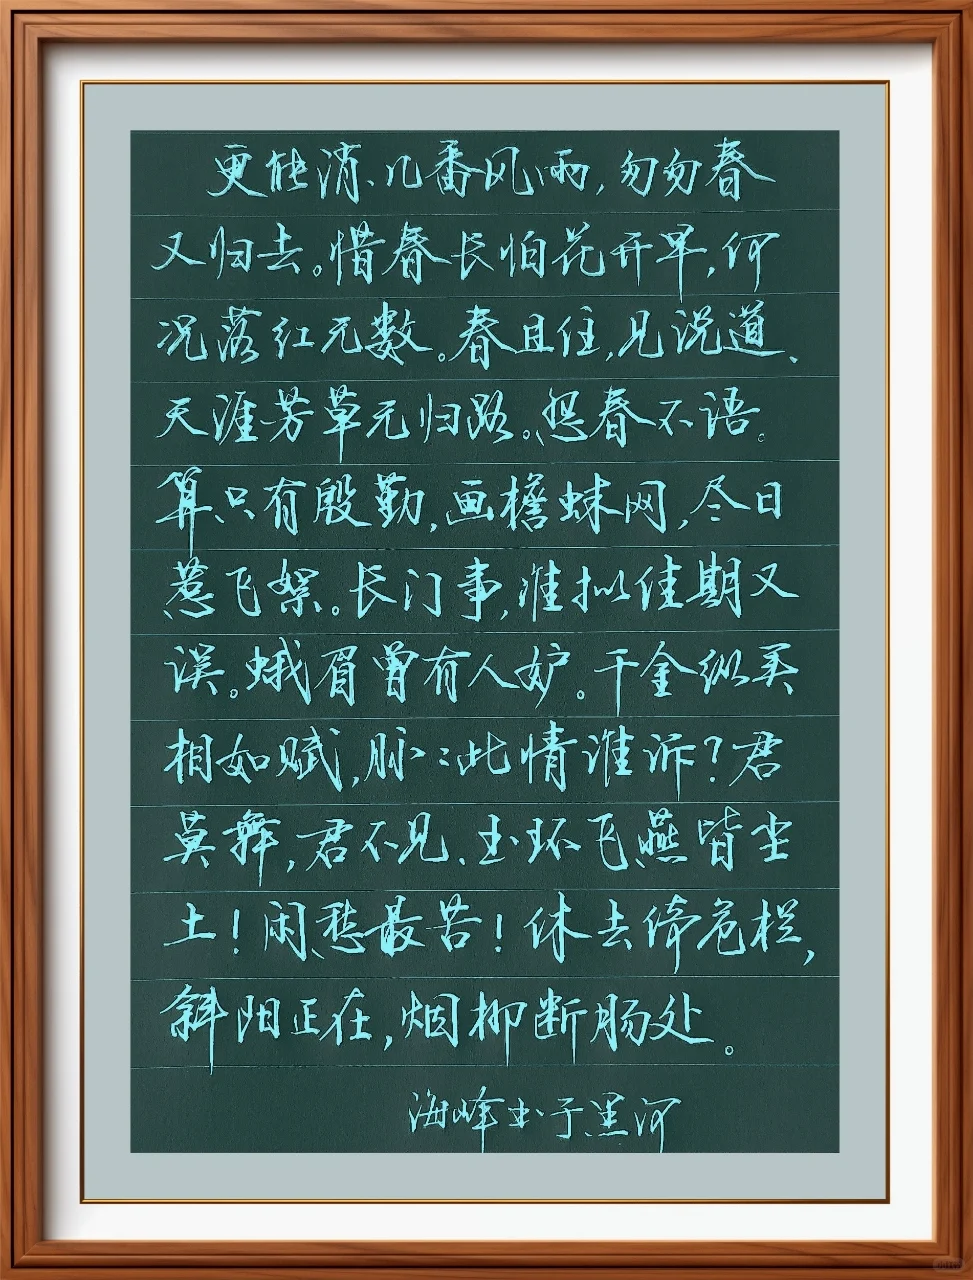 更能消、几番风雨,匆匆春
又归去。惜春长怕花开早,何
况落红无数。春且住,见说道、
天涯芳草无归路。怨春不语。
算只有殷勤,画檐蛛网,尽日
惹飞絮。长门事,准拟佳期又
误。蛾眉曾有人妒。千金纵买
相如赋,脉々此情谁诉?君
莫舞,君不见、玉环飞燕皆尘
土!闲愁最苦!休去倚危栏,
斜阳正在,烟柳断肠处。
海峰书于黑河